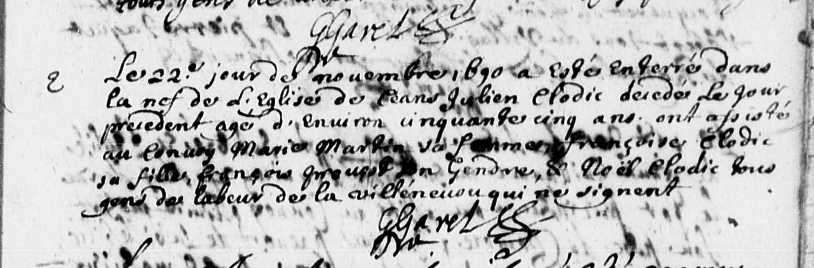 GGarel
2
Le 22e jour de novembre 1690 a esté enterré dans
la nef de l'Eglise de Ceans Julien Clodic decedé le jour
precedent agé d'environ cinquante cinq ans. ont assisté
au convoy Marie Martin sa femme, françoise Clodic
sa fille, françois son Gendre, & Noël Clodic tous
gens de labeur de la villeneuve qui ne signent
GGarel